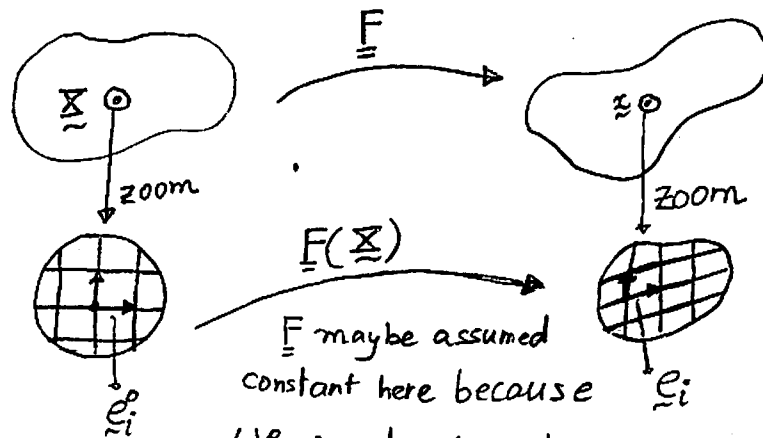 F
X
x
zoom
zoom
F(X)
F maybe assumed
constant here because
e°i
ei